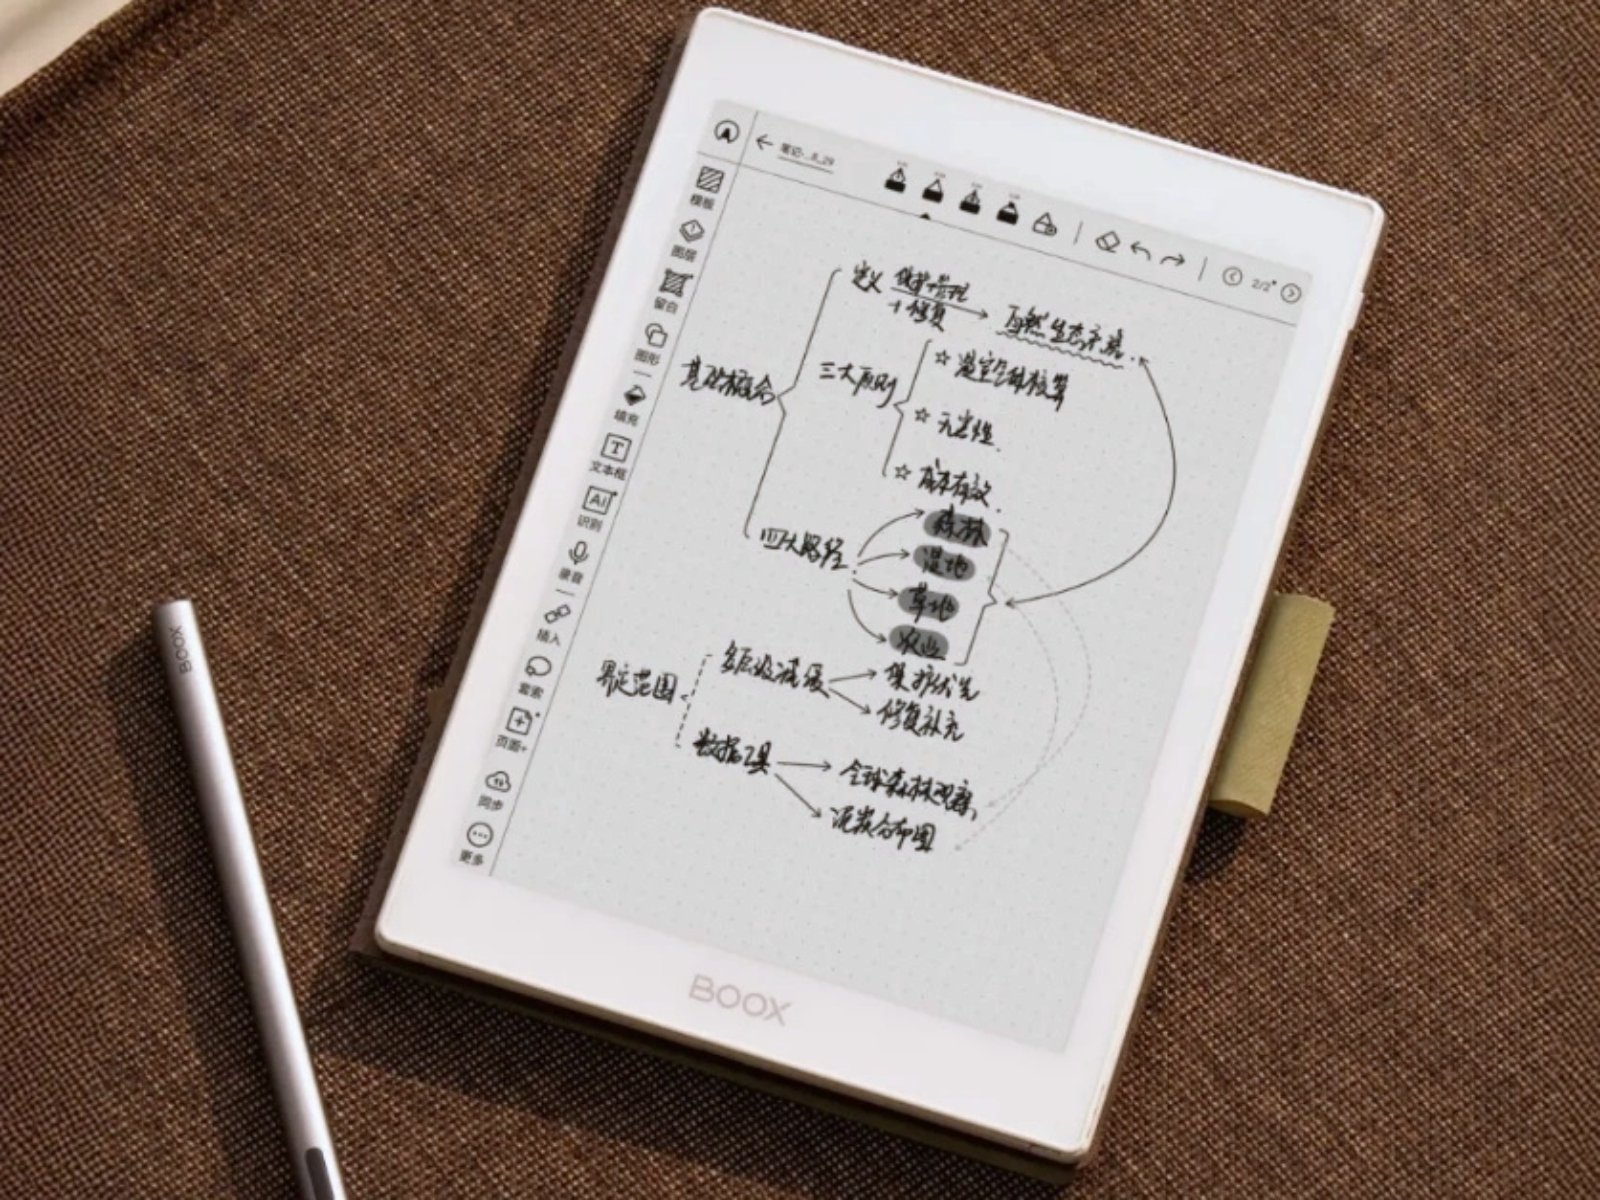 A
← 笔记-...8_29
2/2
模板
图层
留白
图形
填充
T
文本框
AI
识别
录音
插入
套索
页面+
同步
更多
基础概念
定义 保护+管理
+修复
自然生态系统
三大原则
☆ 温室气体核算
☆ 无害性
☆ 成本有效
四大路径
森林
湿地
草地
农业
界定范围
多层级减缓
保护优先
修复补充
数据工具
全球森林观察
泥炭分布图
BOOX
BOOX